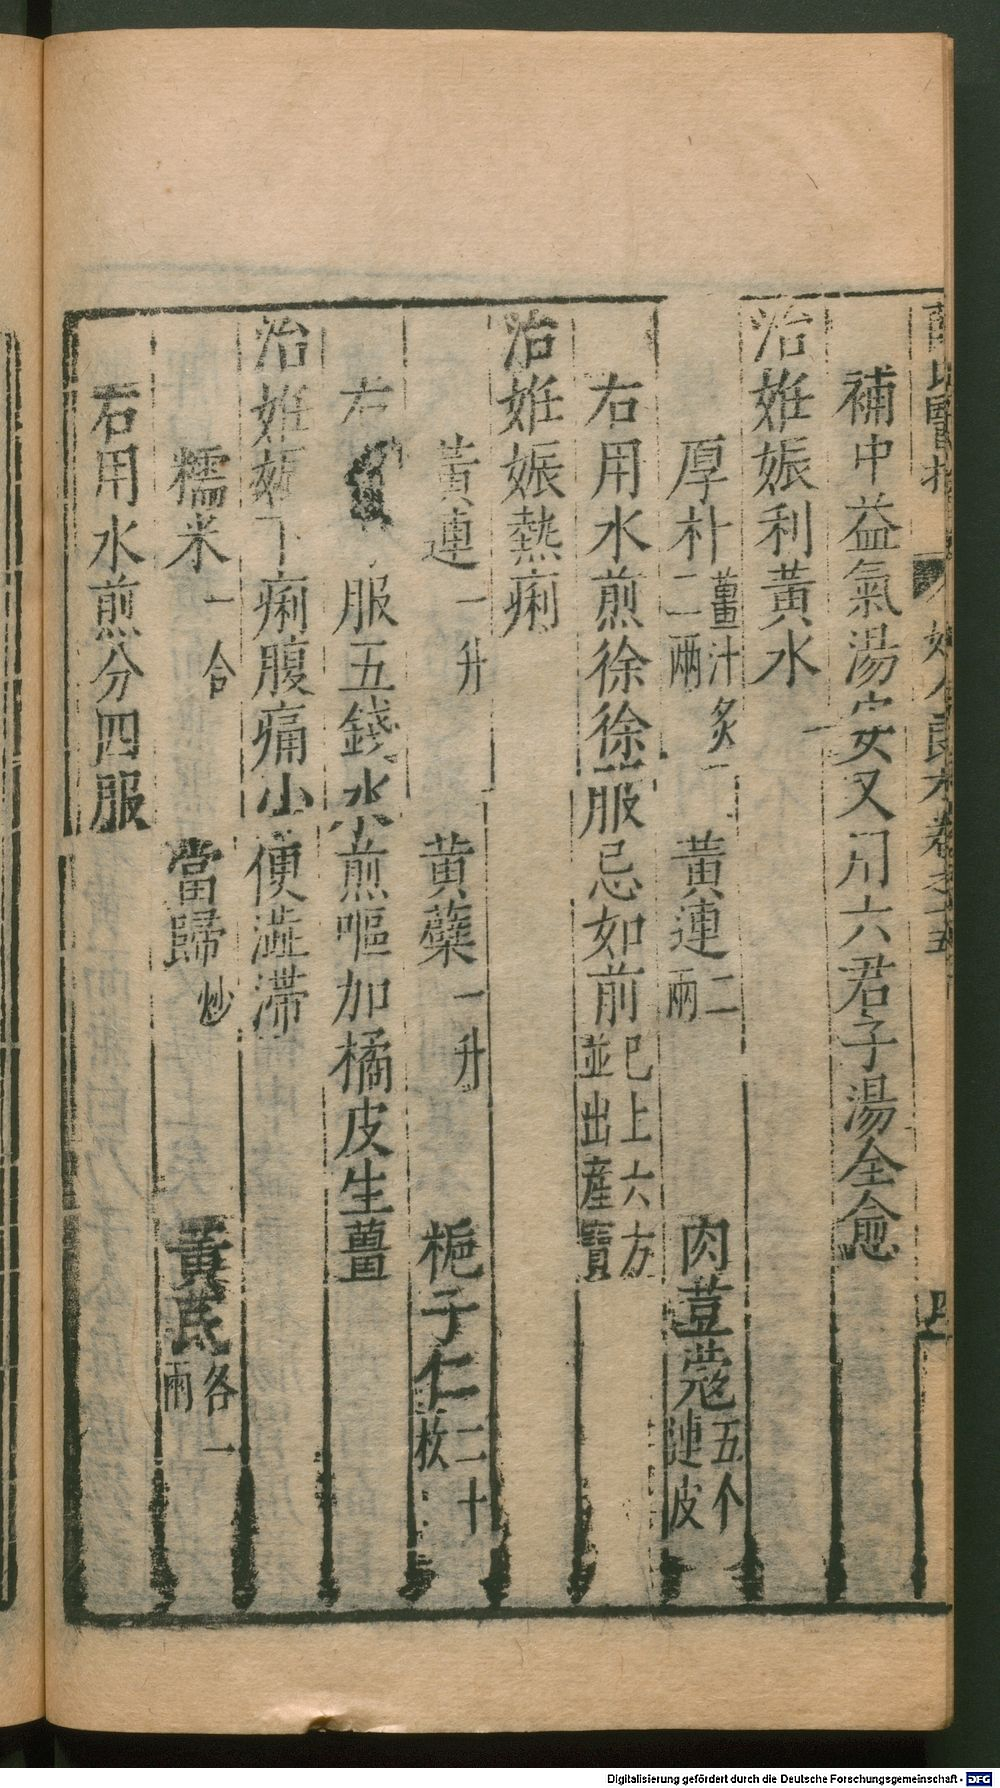 婦人良方卷之十五
補中益氣湯安又用六君子湯全愈
治姙娠利黃水
厚朴薑汁炙二兩 黃連二兩 肉荳蔻五个連皮
右用水煎徐徐服忌如前已上六方並出產寶
治姙娠熱痢
黃連一升 黃蘗一升 梔子仁二十枚
右 服五錢水煎嘔加橘皮生薑
治姙娠下痢腹痛小便澁滯
糯米一合 當歸炒 黃芪各一兩
右用水煎分四服
Digitalisierung gefördert durch die Deutsche Forschungsgemeinschaft - DFG